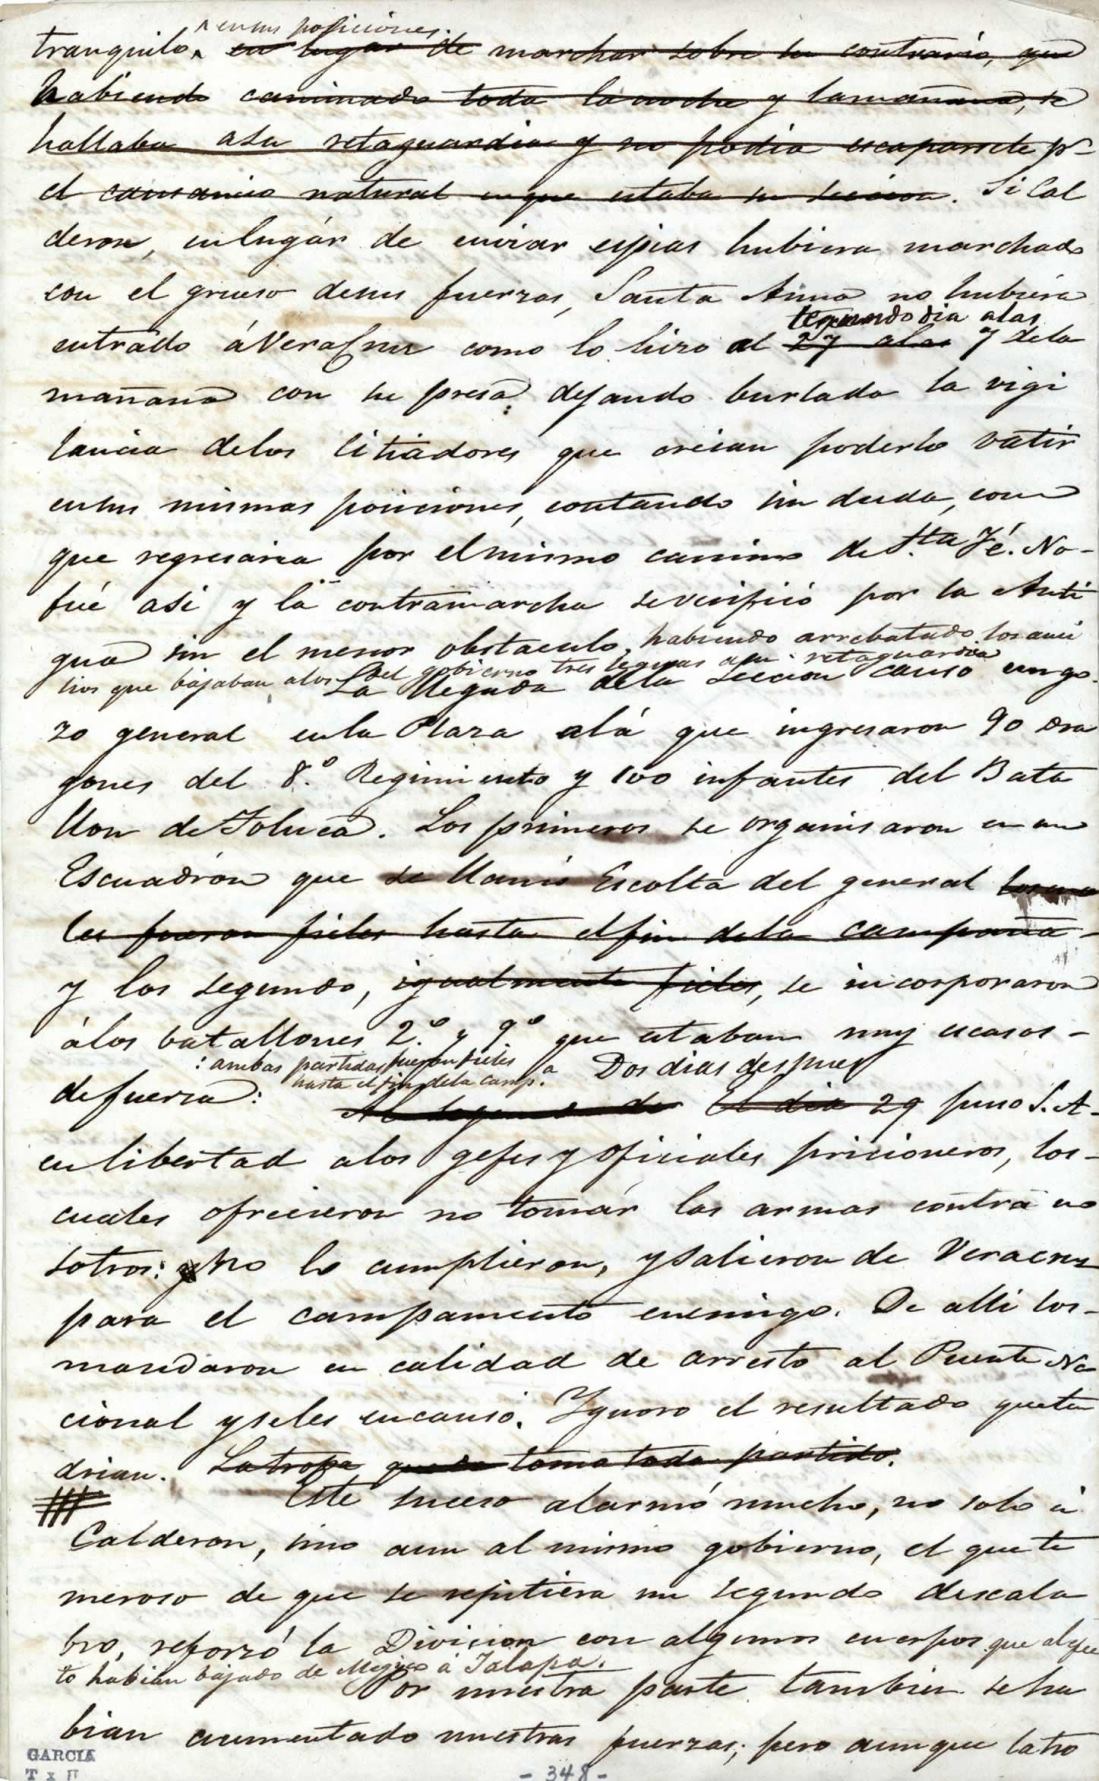 tranquilo ^ en sus posiciones. en lugar de marchar sobre su contrario, que
habiendo caminado toda la noche y la mañana, se
hallaba a su retaguardia y no podia escaparsele pr
el cansancio natural en que estaba su seccion. Si Cal
deron, en lugár de enviar espias hubiera marchado
con el grueso de sus fuerzas, Santa Anna no hubiera
segundo dia a las
entrado á VeraCruz como lo hizo al 27 a las 7 de la
mañana con su presa; dejando burlada la vigi
lancia de los sitiadores que creian poderlo vatir
en sus mismas posiciones, contando sin duda, con
que regresaria por el mismo camino de Sta Fé. No-
fué asi y la contramarcha se verificó por la Anti
gua sin el menor obstaculo, habiendo arrebatado los auci
lios que bajaban a los del gobierno tres leguas a su retaguardia
La llegada de la seccion causo un go-
zo general en la Plaza a lá que ingresaron 90 dra
gones del 8.º Regimiento y 100 infantes del Bata
llon de Toluca. Los primeros se organisaron en un
Escuadrón que se llamó Escolta del general
les fueron fieles hasta el fin de la campaña-
y los segundo, igualmente fieles, se incorporaron
á los batallones 2.º y 9º que estaban muy escasos-
: ambas partidas fueron fieles a Dos dias despues
hasta el fin de la camp.
de fuerza: El dia 29 puso S. A-
en libertad a los gefes y oficiales pricioneros, los-
cuales ofrecieron no tomár las armas contra no
sotros: y No lo cumplieron, y salieron de Veracruz
para el campamento enemigo. De alli los-
mandaron en calidad de arresto al Puente Na
cional y se les encausó. Ygnoro el resultado que ten
drian. La tropa tomo toda partido.
Este suceso alarmó mucho, no solo á
Calderon, sino aun al mismo gobierno, el que te
meroso de que se repitiera un segundo descala
bro, reforzó la Division con algunos cuerpos que al efec
to habian bajado de Mejico á Jalapa.
Por nuestra parte tambien se ha
bian aumentado nuestras fuerzas; pero aunque la tro
GARCIA
T x II
- 348 -